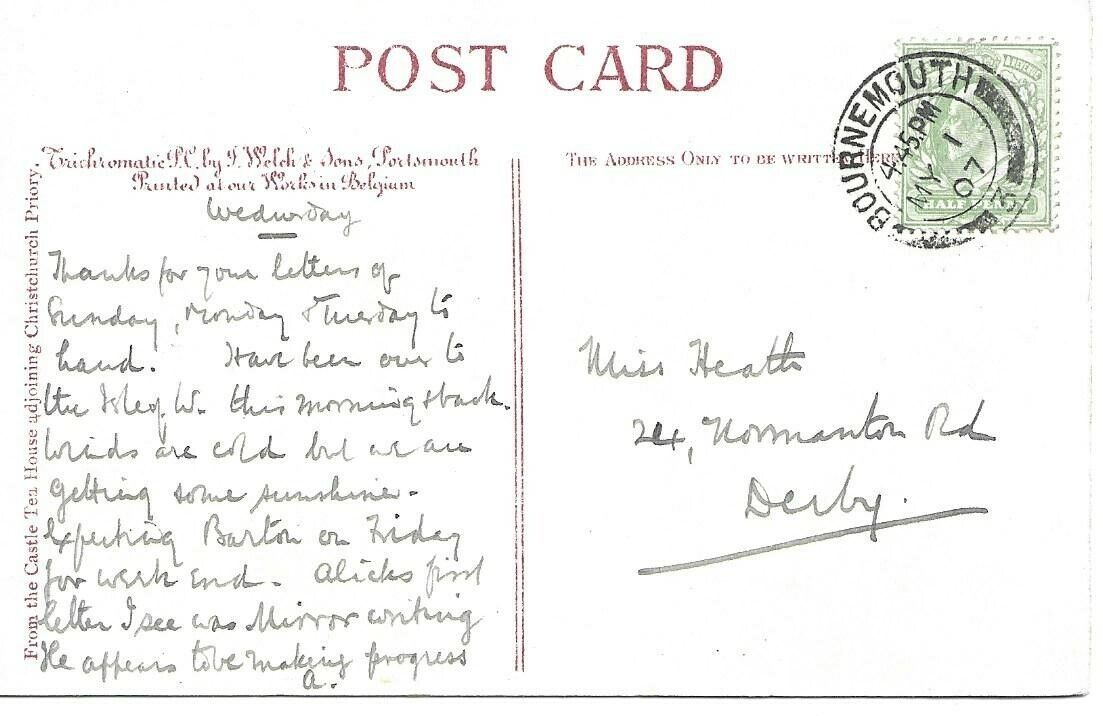 POST CARD
Trichromatic P.C. by J. Welch & Sons, Portsmouth
Printed at our Works in Belgium
From the Castle Tea House adjoining Christchurch Priory.
Wednesday
Thanks for your letters of
Sunday, Monday & Tuesday to
hand. Have been over to
the Isle of W. this morning & back.
Winds are cold but we are
getting some sunshine -
Expecting Barton on Friday
for week end. Alicks first
letter I see was Mirror writing
He appears to be making progress
A.
THE ADDRESS ONLY TO BE WRITTEN HERE
BOURNEMOUTH
4.45 PM
MY 1
07
& REVENUE
HALF PENNY
Miss Heath
24, Normanton Rd
Derby.